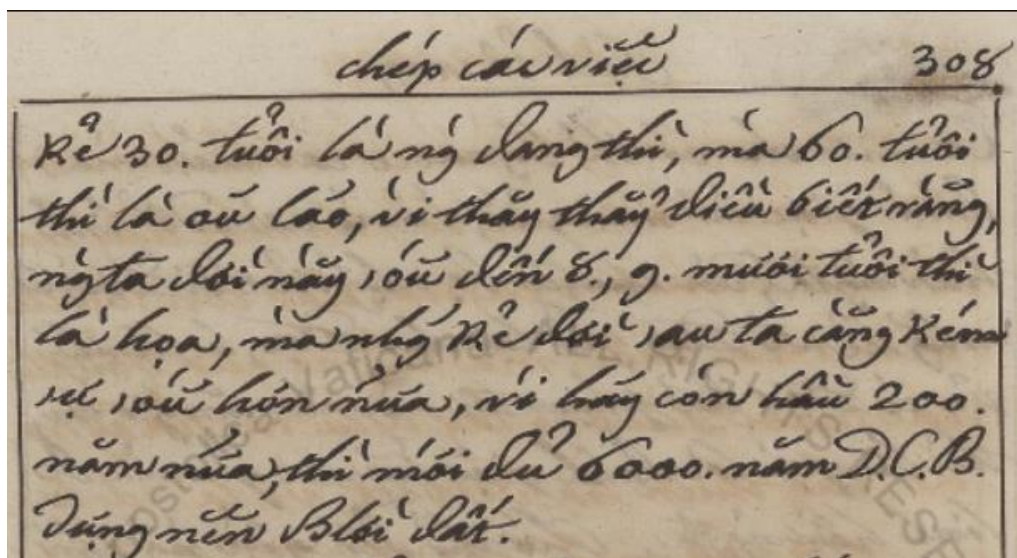 chép các việc 308
kẻ 30. tuổi là ng᷃ đang thì, mà 60. tuổi
thì là ou᷃ lão, vì thầy thấy điều biết rằng,
ng᷃ ta đời nầy sóu᷃ đến 8., 9. mươi tuổi thì
là họa, mà nh᷃g kẻ đời sau ta càng kém
sự sóu᷃ hơn nữa, vì hãy còn hầu 200.
năm nữa, thì mới đủ 6000. năm D.C.B.
dựng nên Blời đất.